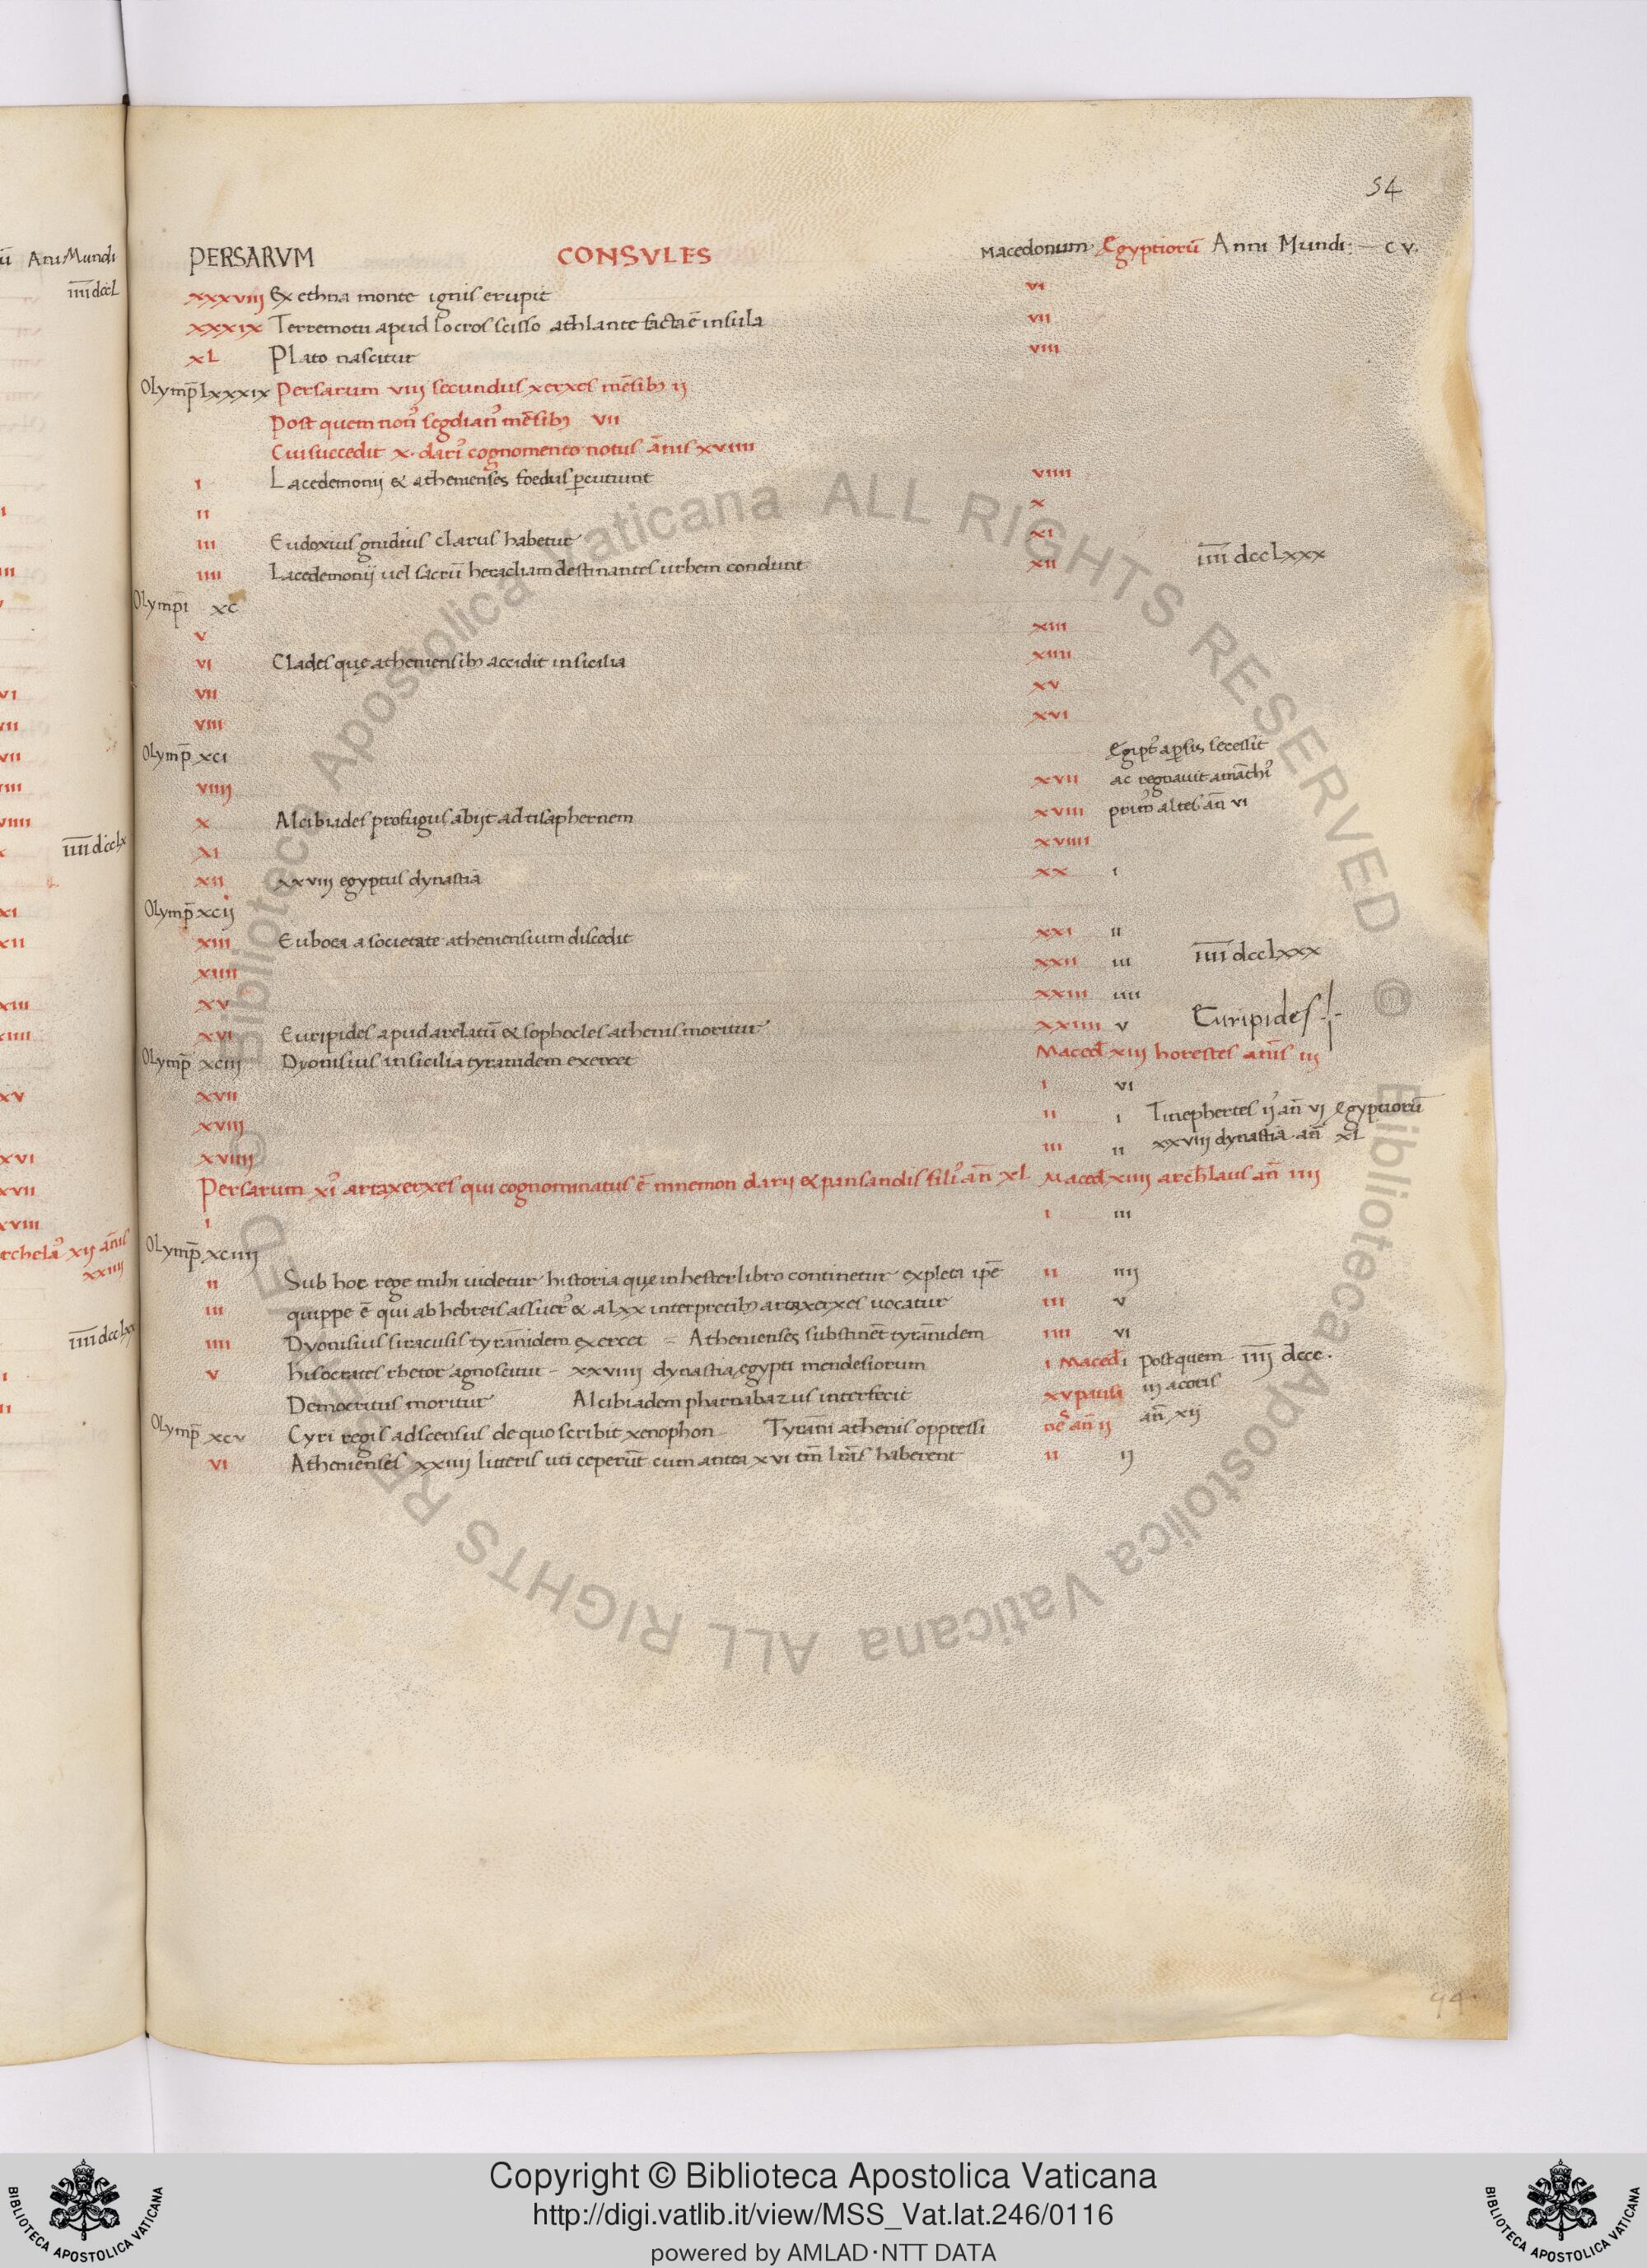 54
PERSARVM CONSVLES Macedonum Egyptiorū Anni Mundi: — c v.
xxxviii Ex ethna monte ignis erupit vi
xxxix Terremotu apud locros scisso athlante facta ē insula vii
xL Plato nascitur viii
Olymp̄ Lxxxix Persarum viii secundus xerxes mēsib; ii
Post quem noñ segdian' mēsib; vii
Cui succedit x. dari' cognomento notus ānis xviiii
i Lacedemonij & athenienses foedus percutiunt viiii
ii x
iii Eudoxius gnidius clarus habetur xi
iiii Lacedemonij uel sacrū heracliam destinantes urbem condunt xii īīīī dccLxxx
Olympi xc
v xiii
vi Clades que atheniensib; accidit in sicilia xiiii
vii xv
viii xvi
Olymp̄ xci Egipt' a persis secessit
viiii xvii ac regnauit amāthi'
x Alcibiades profugus abijt ad tisaphernem xviii prim' altes an̄ vi
xi xviiii
xii xxviii egyptus dynastia xx i
Olymp̄ xcii
xiii Euboea a societate atheniensium discedit xxi ii
xiiii xxii iii īīīī dccLxxx
xv xxiii iiii
xvi Euripides apud arelatū & sophocles athenis moritur xxiiii v Euripides
Olymp̄ xciii Dyonisius in sicilia tyranidem exercet Maced̄ xiii horestes anīs iii
xvii i vi
xviii ii i Tinephertes ij' an̄ vi egyptiorū
xviiii iii ii xxviiii dynastia an̄ xL
Persarum xi' artaxerxes qui cognominatus ē mnemon darij & parisandis fili' an̄ xL Maced̄ xiiii archelaus an̄ iiii
i i iii
Olymp̄ xciiii
ii Sub hoc rege mihi uidetur historia que in hester libro continetur expleta ipē ii iiii
iii quippe ē qui ab hebreis assuer' & a Lxx interpretib; artaxerxes uocatur iii v
iiii Dyonisius siraculis tyrānidem exercet = Athenienses substinēt tyrānidem iiii vi
v hisocrates rhetor agnoscitur – xxviiii dynastia egypti mendesiorum i Maced̄ i post quem īīīī dccc.
Democritus moritur Alcibiadem pharnabazus interfecit xv pausa iii acoris
Olymp̄ xcv Cyri regis adscensus de quo scribit xenophon Tyrāni athenis oppressi an̄ ii an̄ xij
vi Athenienses xxiiii litteris uti ceperūt cum antea xvi tm̄ lr̄as haberent ii ij
ū Ani Mundi
īīīī dccL
īīīī dccLx
Copyright © Biblioteca Apostolica Vaticana
http://digi.vatlib.it/view/MSS_Vat.lat.246/0116
powered by AMLAD·NTT DATA
BIBLIOTECA APOSTOLICA VATICANA
BIBLIOTECA APOSTOLICA VATICANA